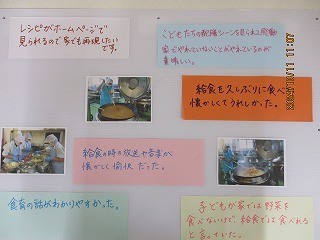 レシピがホームページで
見られるので家でも再現したい
です。
こどもたちの配膳シーンを見られて感動
家でやれていないことがやれているのが
素晴しい。
給食を久しぶりに食べて
懐かしくてうれしかった。
給食の時の放送や音楽が
懐かしく愉快だった。
食育の話がわかりやすかった。
子どもが家では野菜を
食べないけど、給食では食べれる
と言っていた。